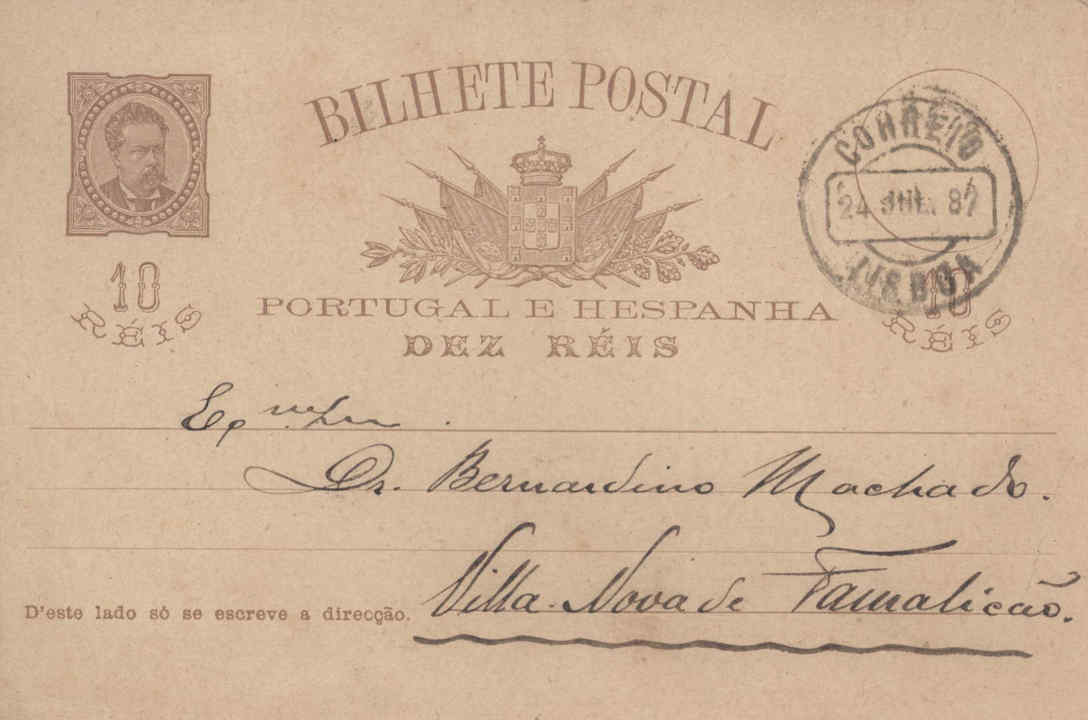 BILHETE POSTAL
CORREIO
24 JUL. 87
LISBOA
10 RÉIS
10 RÉIS
PORTUGAL E HESPANHA
DEZ RÉIS
Ex.mo Snr.
Dr. Bernardino Machado.
Villa Nova de Famalicão.
D'este lado só se escreve a direcção.